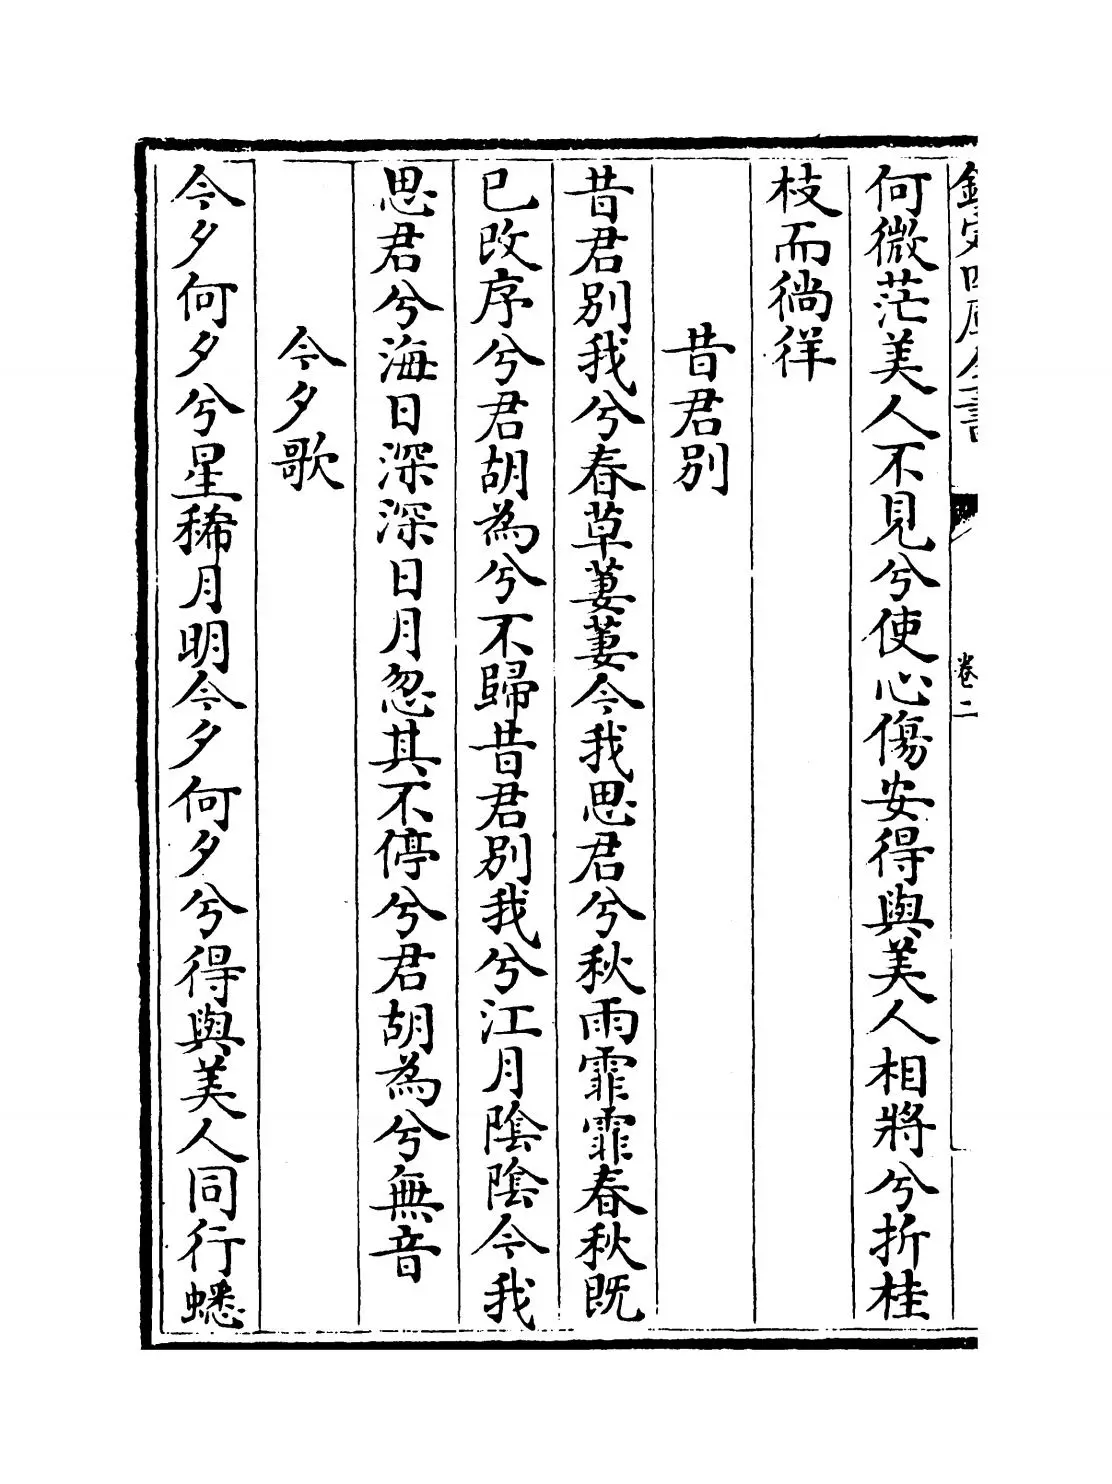 欽定四庫全書
卷二
何微茫美人不見兮使心傷安得與美人相將兮折桂
枝而徜徉
昔君别
昔君别我兮春草萋萋今我思君兮秋雨霏霏春秋既
已改序兮君胡為兮不歸昔君别我兮江月陰陰今我
思君兮海日深深日月忽其不停兮君胡為兮無音
今夕歌
今夕何夕兮星稀月明今夕何夕兮得與美人同行蟋